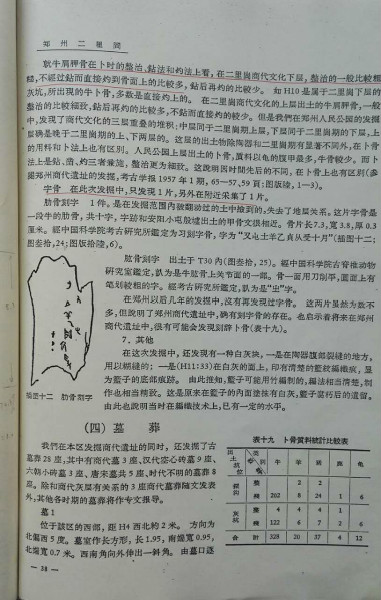 郑州二里岡
就牛肩胛骨在卜时的整治、鉆法和灼法上看,在二里崗商代文化下层,整治的一般比較粗
糙,不經过鉆而直接灼到骨面上的比較多,鉆后再灼的比較少。如H10是属于二里崗下层的
灰坑,所出現的牛卜骨,多数是直接灼上的。在二里崗商代文化的上层出土的牛肩胛骨,一般
整治的比較細致,鉆后再灼的比較多,不鉆而直接灼的較少。但是我們在郑州人民公园的发掘
中,发現了商代文化的三层重叠的堆积:中层同于二里崗期上层,下层同于二里崗期的下层,上
层确是晚于二里崗期的上、下两层的。这层的出土物除陶器和二里崗期有显著不同外,在卜骨
的用料和卜法上也有区别。人民公园上层出土的卜骨,質料以龟的腹甲最多,牛骨較少。而卜
法上是鉆、凿、灼三者兼施,整治更为細致。这說明因时間先后的不同,在卜骨上也有区别(参
閱郑州商代遺址的发掘,考古学报1957年1期,65—57,59頁;图版陵,1—3)。
字骨 在此次发掘中,只发現1片,另外在附近采集了1片。
肋骨刻字 1件。是在发掘范围内被翻动过的土中揀到的,失去了地层关系。这片字骨是
一段牛的肋骨,共十字,字迹和安阳小屯殷墟出土的甲骨文很相近。骨片长7.3,寬3.8,厚0.3
厘米。經中国科学院考古研究所鑑定为习刻字骨,字为“又乇土羊乙貞从受十月”(插图十二;
图叁拾,24;图版拾陵,6)。
肱骨刻字 出土于T30内(图叁拾,25)。經中国科学院古脊椎动物
研究室鑑定,認为是牛肱骨上关节面的一部。骨一面用刀削平,面面上有
笔划較粗的字。經考古研究所鑑定,認为是“㞢”字。
在郑州以后几年的发掘中,沒有再发現过字骨。这两片虽然为数不
多,但說明了郑州商代遺址中,确有刻字骨的存在。也启示着将来在郑州
商代遺址中,很有可能会发現刻辞卜骨(表十九)。
7. 其他
在这次发掘中,还发現有一种白灰块,一是在陶器腹部裂縫的地方,
用以糊縫的;一是(H11:33)在白灰的面上,印有清楚的籃紋編織痕,显
为籃子的底部痕跡。由此推知,籃子可能用竹編制的,編法相当清楚,制
作也相当精致。这是原来在籃子的内面塗抹有白灰,籃子腐朽后的遺留。
由此也說明当时在編織技术上,已有一定的水平。
插图十二 肋骨刻字
(四) 墓 葬
我們在本区发掘商代遺址的同时,还发掘了古
墓葬28座,其中有商代墓3座、汉代空心砖墓9座、
六朝小砖墓3座、唐宋墓共5座、时代不明的墓葬8
座。除和商代灰层有关系的3座商代墓葬随文发表
外,其他各时期的墓葬将作专文报导。
墓1
位于該区的西部,距H4西北約2米。方向为
北偏西5度。墓室作长方形,长1.95,南端寬0.95,
北端寬0.7米。西南角向外伸出一斜角。由墓口逐
表十九 卜骨質料統計比較表
牛 羊 鹿 龟
整 2 2
殘 202 8 24 1 6
灰坑 整 4 4 4 1
殘 122 6 7 2 6
合計 328 20 37 4 12
— 38 —